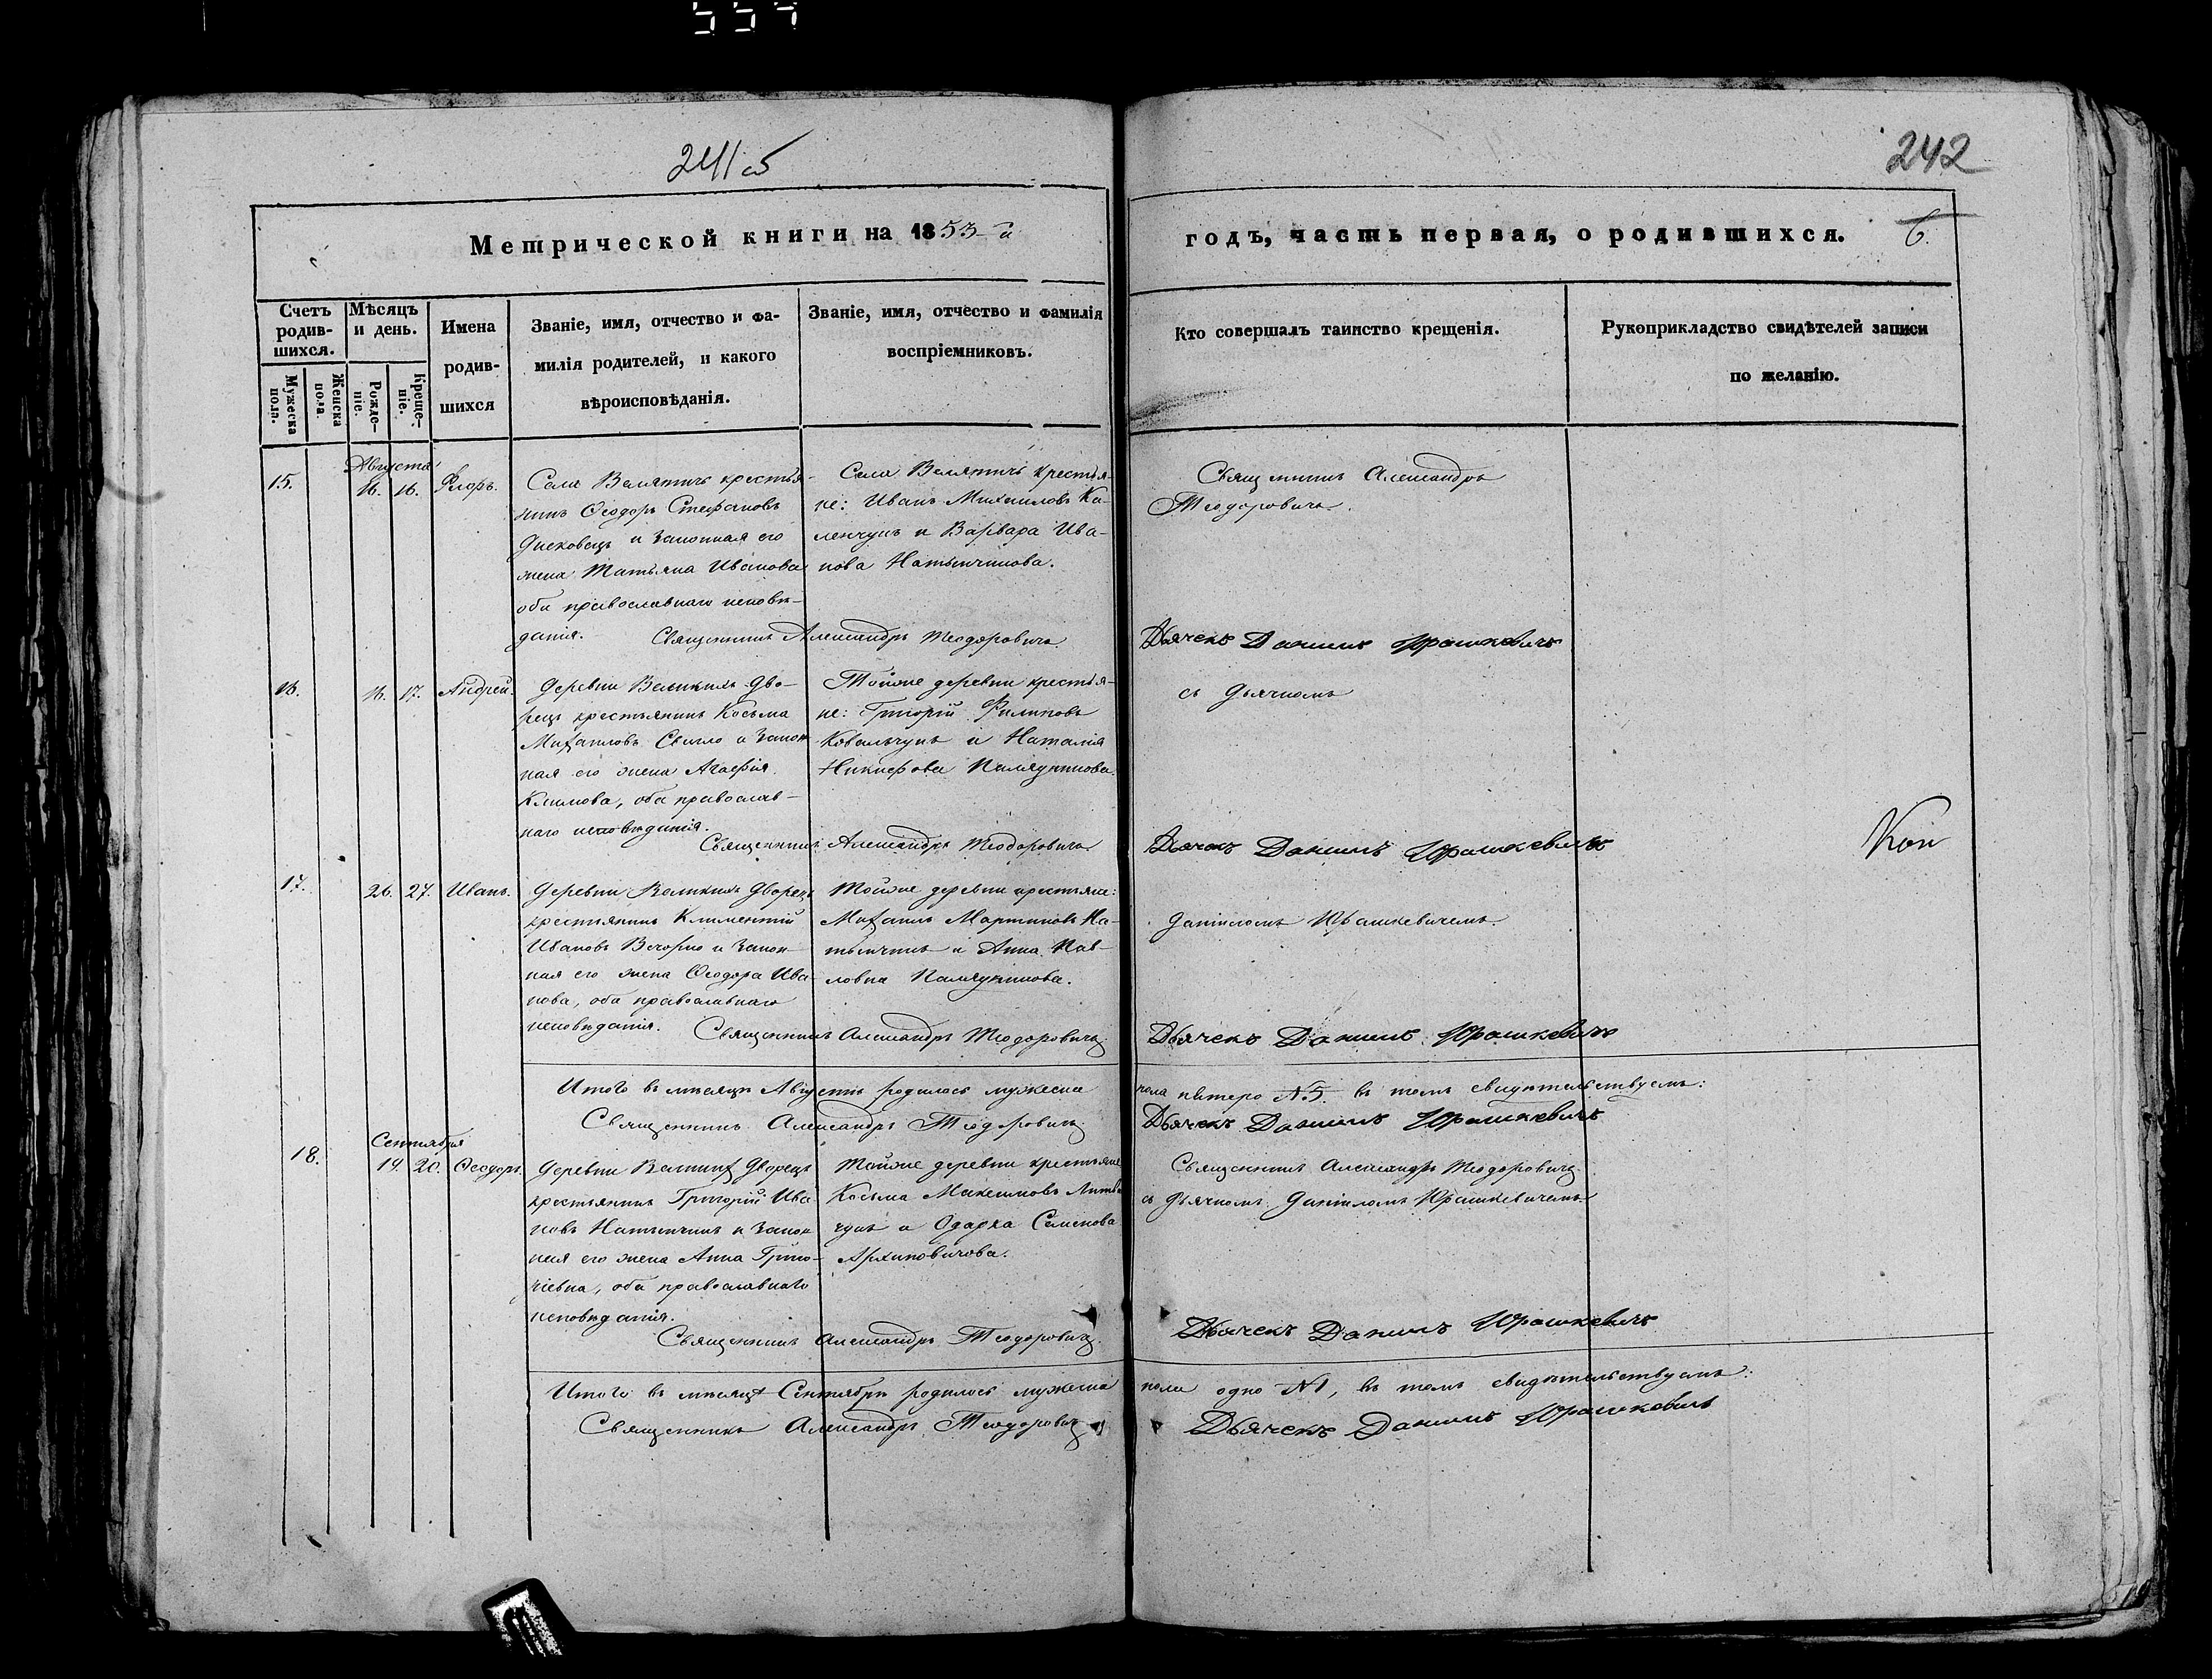 241 об
242
Метрической книги на 1853-й
годъ, часть первая, о родившихся.
6.
Счетъ родившихся.
Мужеска пола.
Женска пола.
Мѣсяцъ и день.
Рожденіе.
Крещеніе.
Имена родившихся
Званіе, имя, отчество и фамилія родителей, и какого вѣроисповѣданія.
Званіе, имя, отчество и фамилія воспріемниковъ.
Кто совершалъ таинство крещенія.
Рукоприкладство свидѣтелей записи по желанію.
Августа
15.
16. 16.
Флоръ.
Села Велятичъ крестья-
нинъ Ѳеодоръ Стефановъ
и законная его
жена Татьяна Иванова
оба православнаго исповѣ-
данія.
Села Велятичъ крестья-
не: Иванъ Михаиловъ Ка-
ленчукъ и Варвара Ива-
нова Натынчикова.
Священникъ Александръ
Теодоровичъ.
Священникъ Александръ Теодоровичъ
Дьячекъ Даниилъ Юрашкевичъ
16.
16. 17.
Андрей.
Деревни Великихъ Дво-
рецъ крестьянинъ Косьма
Михаиловъ Свигло и закон
ная его жена Агафія
Климова, оба православ-
наго исповѣданія.
Тойже деревни крестья-
не: Григорій Филиповъ
Ковальчукъ и Наталія
Никифорова
съ дьячкомъ
Священникъ Александръ Теодоровичъ
Дьячекъ Даниилъ Юрашкевичъ
Коп
17.
26. 27.
Иванъ.
Деревни Великихъ Дворецъ
крестьянинъ Климентій
Ивановъ Вечорко и закон
ная его жена Ѳеодора Ива-
нова, оба православнаго
исповѣданія.
Тойже деревни крестьяне:
Михаилъ Мартиновъ На-
тынчикъ и Анна Пав-
ловна
Даніиломъ Юрашкевичемъ.
Священникъ Александръ Теодоровичъ
Дьячекъ Даниилъ Юрашкевичъ
Итого въ мѣсяцѣ Августѣ родилось мужеска
пола пятеро №5. въ томъ свидѣтельствуемъ:
Священникъ Александръ Теодоровичъ
Дьячекъ Даниилъ Юрашкевичъ
Сентября
18.
19. 20.
Ѳеодоръ.
Деревни Великихъ Дворецъ
крестьянинъ Григорій Ива
новъ Натынчикъ и закон
ная его жена Анна Григо-
ріевна, оба православнаго
исповѣданія.
Тойже деревни крестьяне
Косьма Максимовъ Литви
чукъ и Одарка Семенова
Архиповичова.
Священникъ Александръ Теодоровичъ
съ дьячкомъ Даніиломъ Юрашкевичемъ
Священникъ Александръ Теодоровичъ.
Дьячекъ Даниилъ Юрашкевичъ
Итого въ мѣсяцѣ Сентябрѣ родилось мужеска
пола одно №1, въ томъ свидѣтельствуемъ:
Священникъ Александръ Теодоровичъ
Дьячекъ Даниилъ Юрашкевичъ